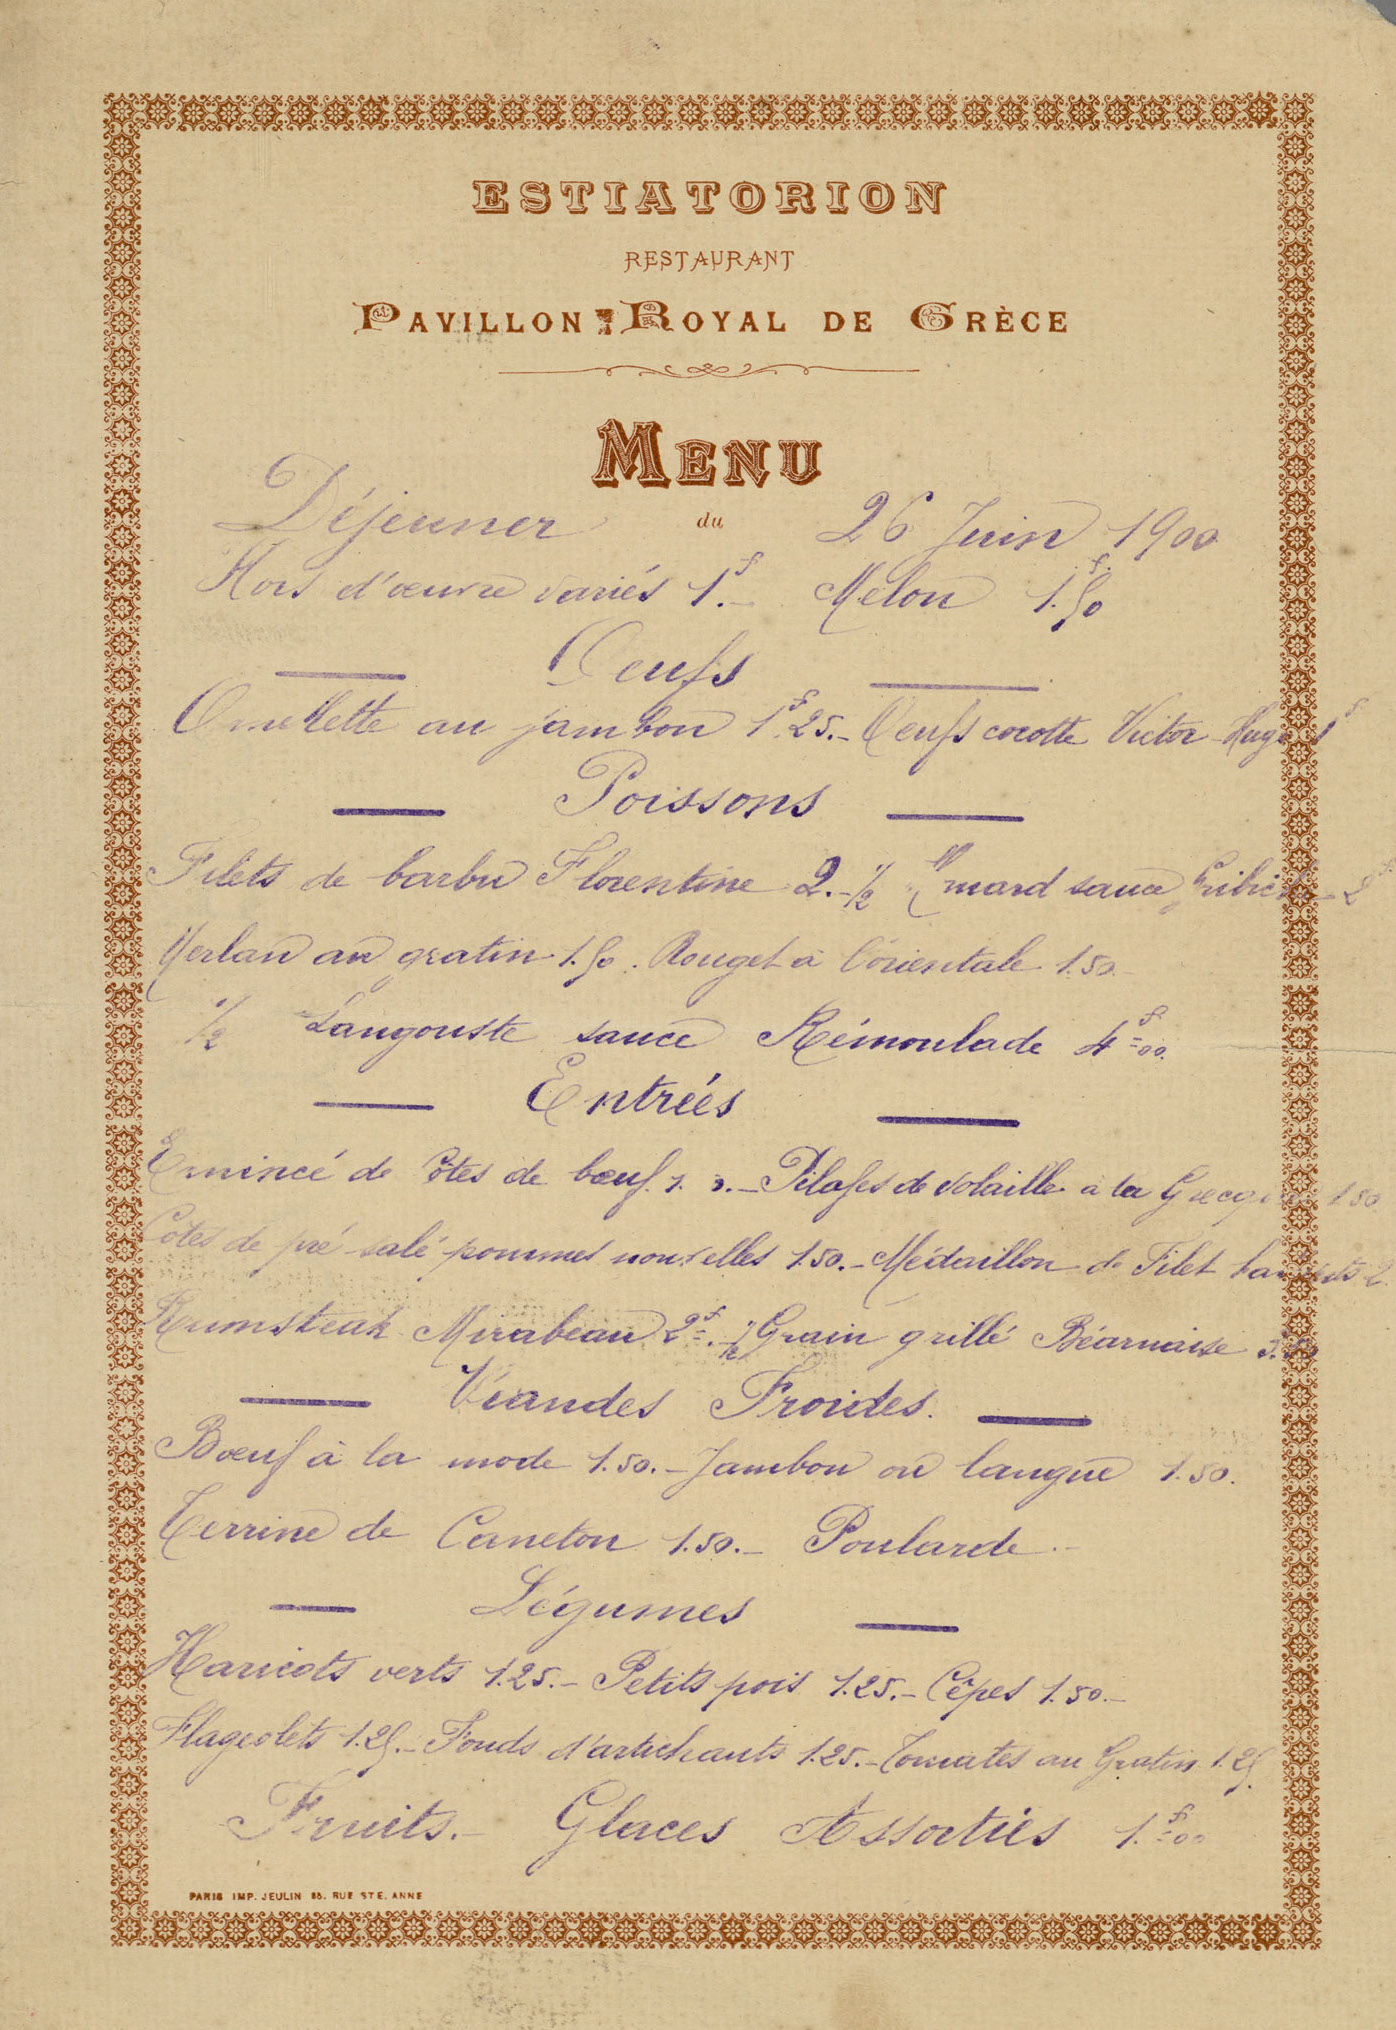 ESTIATORION
RESTAURANT
PAVILLON ROYAL DE GRÈCE
MENU
Déjeuner du 26 Juin 1900
Hors d'œuvre variés 1.f– Melon 1.f50
Oeufs
Omelette au jambon 1f.25.– Oeufs cocotte Victor-Hugo 1f
Poissons
Filets de barbu Florentine 2.– 1/2 Homard sauce Gribiche 2f
Merlan au gratin 1.50. Rouget à l'orientale 1.50.–
1/2 Langouste sauce Rémoulade 4f=00.
Entrées
Emincé de Côtes de bœuf – Pilafes de volaille à la Grecque 1.50
Côtes de pré-salé pommes nouvelles 1.50.– Médaillon de Filet 2
Rumsteak Mirabeau 2f=. 1/2 Grain grillé Béarnaise
Viandes Froides.
Bœuf à la mode 1.50.– Jambon ou langue 1.50.
Terrine de Caneton 1.50.– Poularde.–
Légumes
Haricots verts 1.25.– Petits pois 1.25.– Cêpes 1.50.–
Flageolets 1.25.– Fonds d'artichauts 1.25.– Tomates au Gratin 1.25.
Fruits.– Glaces Assorties 1.f=00
PARIS IMP. JEULIN RUE STE. ANNE